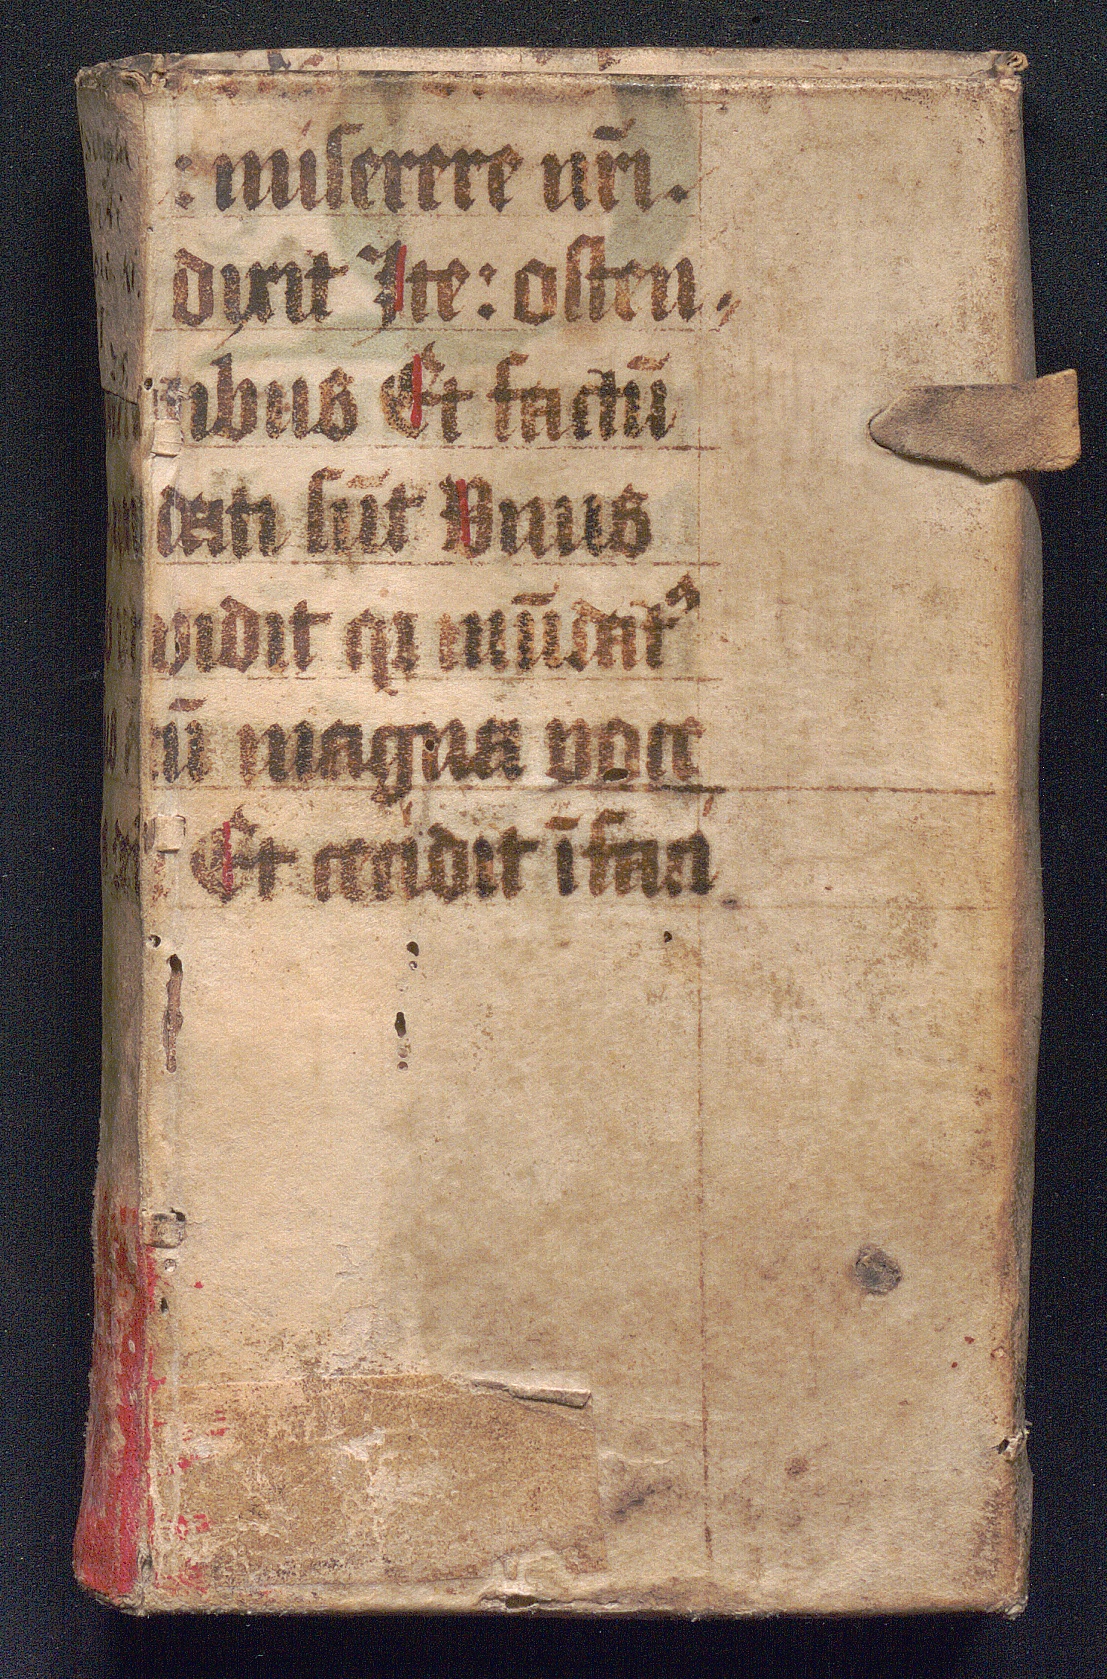 : miserere nr̄i.
dixit Ite: osten,
ibus Et factū
dati sūt Vnus
vidit qꝛ mūdatꝰ
ū magna voce
Et cecidit ī faci